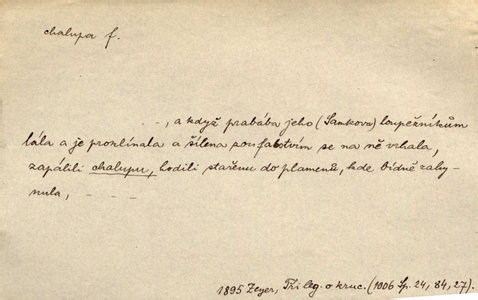 chalupa f.
- -, a když prabába jeho (Samkova) loupežníkům
lála a je proklínala a šílena zoufalstvím se na ně vrhala,
zapálili chalupu, hodili stařenu do plamenů, kde bídně zahy-
nula, - - -
1895 Zeyer, Tři leg. o kruc. (1906 Sp. 24, 84, 27).